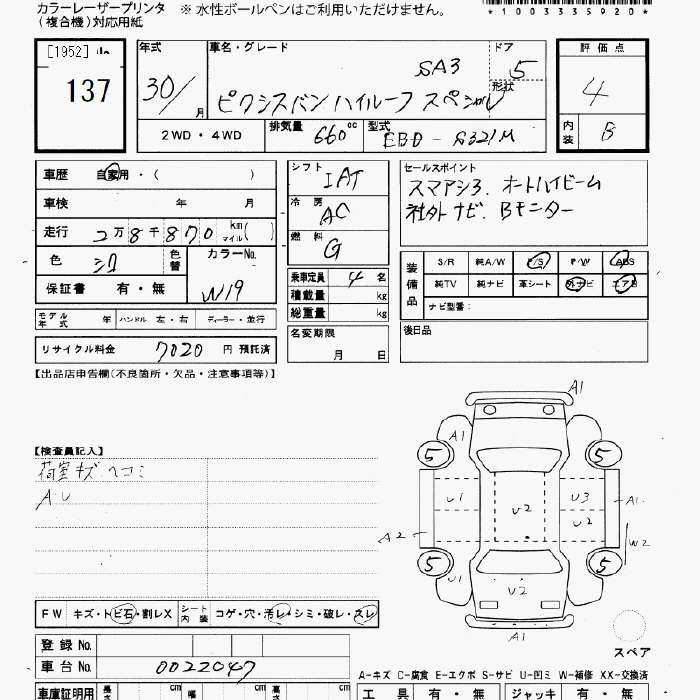 カラーレーザープリンタ ※ 水性ボールペンはご利用いただけません。
(複合機)対応用紙
*1003359 20*
[1952]
137
年式
30/ 月
車名・グレード
SA3
ピクシスバン ハイルーフ スペシャル
ドア
5
形状
評価点
4
内装 B
2WD・4WD
排気量 660 cc
型式 EBD-S321M
車歴 自家用・( )
車検 年 月
走行 2万8千870 km マイル( )
色 シロ
色替
カラーNo.
W19
保証書 有・無
シフト IAT
冷房 AC
燃料 G
乗車定員 4 名
積載量 kg
総重量 kg
名変期限
月 日
セールスポイント
スマアシ3. オートハイビーム
社外ナビ. Bモニター
装備品
S/R 純A/W P/S P/W ABS
純TV 純ナビ 革シート 外ナビ エアB
ナビ型番:
後日品
モデル年式 年 ハンドル 左・右 ディーラー・並行
リサイクル料金 7020 円 預託済
【出品店申告欄(不良箇所・欠品・注意事項等)】
【検査員記入】
荷室キズ ヘコミ
AU
A1
A1
5
5
U1
U2
U3
U2
A1
A2
W2
5
5
U1
U2
A1
スペア
FW キズ・トビ石・割レX シート内装 コゲ・穴・汚レ・シミ・破レ・スレ
登録 No.
車台 No. 0022047
A-キズ C-腐食 E-エクボ S-サビ U-凹ミ W-補修 XX-交換済
車庫証明用 長さ cm 幅 cm 高さ cm
工具 有・無 ジャッキ 有・無